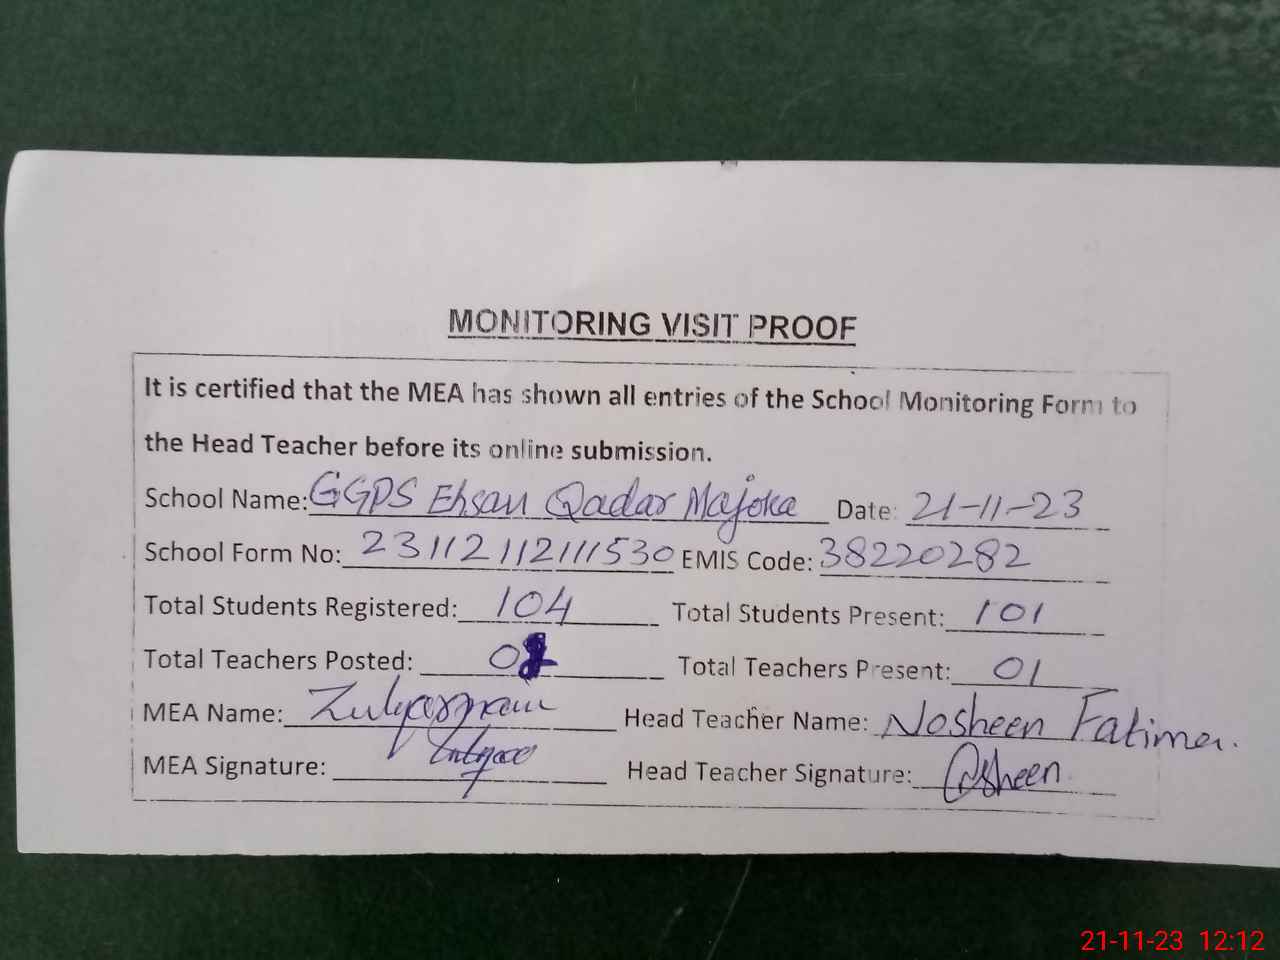 MONITORING VISIT PROOF
It is certified that the MEA has shown all entries of the School Monitoring Form to
the Head Teacher before its online submission.
School Name: GGPS Ehsan Qadar Majoka Date: 21-11-23
School Form No: 231121121111530 EMIS Code: 38220282
Total Students Registered: 104 Total Students Present: 101
Total Teachers Posted: Total Teachers Present: 01
MEA Name: Head Teacher Name: Nosheen Fatima.
MEA Signature: Head Teacher Signature:
21-11-23 12:12